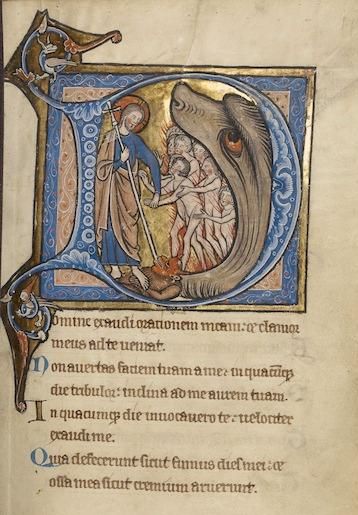 Domine exaudi orationem meam: et clamor
meus ad te ueniat.
Non auertas faciem tuam a me: in quacūqꝫ
die tribulor: inclina ad me aurem tuam.
In quacumqꝫ die inuocauero te: uelociter
exaudi me.
Quia defecerunt sicut fumus dies mei: et
ossa mea sicut cremium aruerunt.